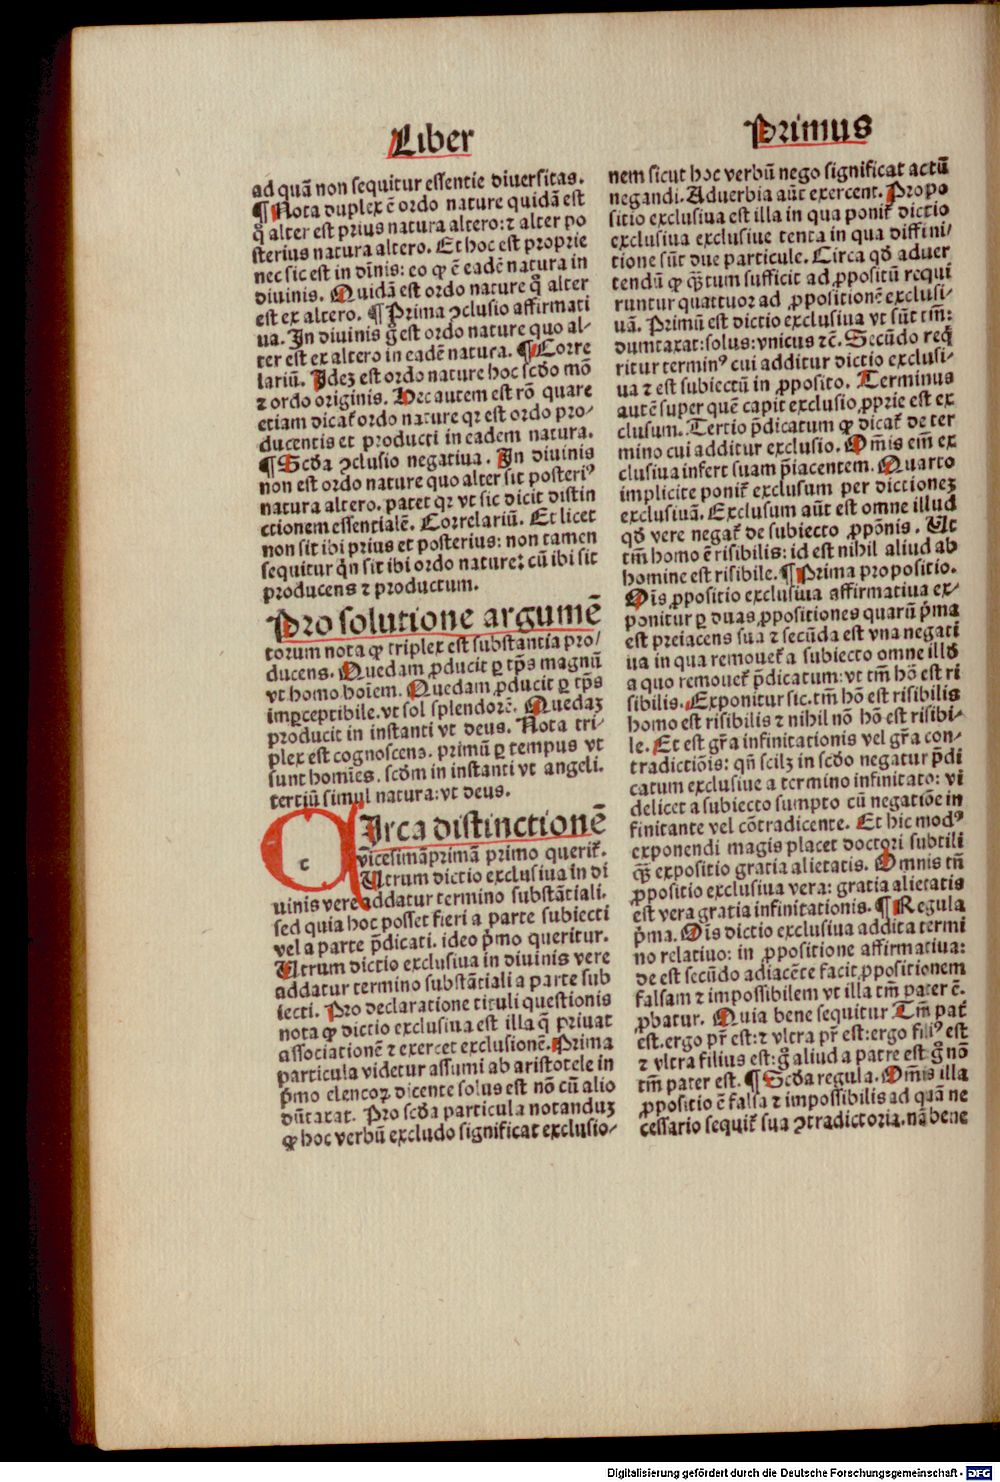 Liber
Primus
ad quã non sequitur essentie diuersitas.
¶ Nota duplex ē ordo nature quidã est
qͦ alter est prius natura altero: ⁊ alter po
sterius natura altero. Et hoc est proprie
nec sic est in diĩnis: eo ꝙ ē eadē natura in
diuinis. Quidã est ordo nature qͦ alter
est ex altero. ¶ Prima ꝯclusio affirmati
ua. In diuinis gͦ est ordo nature quo al-
ter est ex altero in eadē natura. ¶ Corre
lariũ. Idez est ordo nature hoc scďo mõ
⁊ ordo originis. Hec autem est rõ quare
etiam dicať ordo nature qꝛ est ordo pro-
ducentis et producti in eadem natura.
¶ Scďa ꝯclusio negatiua. In diuinis
non est ordo nature quo alter sit posteriꝰ
natura altero. patet qꝛ vt sic dicit distin
ctionem essentialē. Correlariũ. Et licet
non sit ibi prius et posterius: non tamen
sequitur qñ sit ibi ordo nature: cũ ibi sit
producens ⁊ productum.
Pro solutione argumē
torum nota ꝙ triplex est substantia pro-
ducens. Quedam ꝓducit ꝑ tp̃s magnũ
vt homo hoĩem. Quedam ꝓducit ꝑ tp̃s
imꝑceptibile. vt sol splendorē. Quedaz
producit in instanti vt deus. Nota tri-
plex est cognoscens. primũ ꝑ tempus vt
sunt homĩes. scďm in instanti vt angeli.
tertiũ simul natura: vt deus.
c
Irca distinctionē
vicesimãprimã primo queriť.
Utrum dictio exclusiua in di
uinis vere addatur termino substãtiali.
sed quia hoc posset fieri a parte subiecti
vel a parte p̃dicati. ideo p̃mo queritur.
Utrum dictio exclusiua in diuinis vere
addatur termino substãtiali a parte sub
iecti. Pro declaratione tituli questionis
nota ꝙ dictio exclusiua est illa q̃ priuat
associationē ⁊ exercet exclusionē. Prima
particula videtur assumi ab aristotele in
p̃mo elencoꝝ dicente solus est nõ cũ alio
dũtaxat. Pro scďa particula notanduz
ꝙ hoc verbũ excludo significat exclusio-
nem sicut hoc verbũ nego significat actũ
negandi. Aduerbia aũt exercent. Propo
sitio exclusiua est illa in qua poniť dictio
exclusiua exclusiue tenta in qua diffini-
tione sũt due particule. Circa qď aduer
tendũ ꝙ q̃ꝫtum sufficit ad ꝓpositũ requi
runtur quattuor ad ꝓpositionē exclusi-
uã. Primũ est dictio exclusiua vt sũt tm̃:
dumtaxat: solus: vnicus ⁊č. Secũdo req̃
ritur terminꝰ cui additur dictio exclusi-
ua ⁊ est subiectũ in ꝓposito. Terminus
autē super quē capit exclusio ꝓprie est ex
clusum. Tertio p̃dicatum ꝙ dicať de ter
mino cui additur exclusio. Om̃is em̃ ex
clusiua infert suam p̃iacentem. Quarto
implicite poniť exclusum per dictionez
exclusiuã. Exclusum aũt est omne illud
qď vere negať de subiecto ꝓpõnis. Ut
tm̃ homo ē risibilis: id est nihil aliud ab
homine est risibile. ¶ Prima propositio.
Oĩs ꝓpositio exclusiua affirmatiua ex-
ponitur ꝑ duas ꝓpositiones quarũ p̃ma
est preiacens sua ⁊ secũda est vna negati
ua in qua remoueť a subiecto omne illď
a quo remoueť p̃dicatum: vt tm̃ hõ est ri
sibilis. Exponitur sic. tm̃ hõ est risibilis
homo est risibilis ⁊ nihil nõ hõ est risibi-
le. Et est gr̃a infinitationis vel gr̃a con-
tradictiõis: qñ scilꝫ in scďo negatur p̃di
catum exclusiue a termino infinitato: vi
delicet a subiecto sumpto cũ negatiõe in
finitante vel cõtradicente. Et hic modꝰ
exponendi magis placet doctori subtili
q̃ꝫ expositio gratia alietatis. Omnis tñ
ꝓpositio exclusiua vera: gratia alietatis
est vera gratia infinitationis. ¶ Regula
p̃ma. Oĩs dictio exclusiua addita termi
no relatiuo: in ꝓpositione affirmatiua:
de est secũdo adiacēte facit ꝓpositionem
falsam ⁊ impossibilem vt illa tm̃ pater ē.
ꝓbatur. Quia bene sequitur Tm̃ pať
est. ergo pr̃ est: ⁊ vltra pr̃ est: ergo filiꝰ est
⁊ vltra filius est: gͦ aliud a patre est gͦ nõ
tm̃ pater est. ¶ Scďa regula. Om̃is illa
ꝓpositio ē falsa ⁊ impossibilis ad quã ne
cessario sequiť sua ꝯtradictoria. nã bene
Digitalisierung gefördert durch die Deutsche Forschungsgemeinschaft - DFG